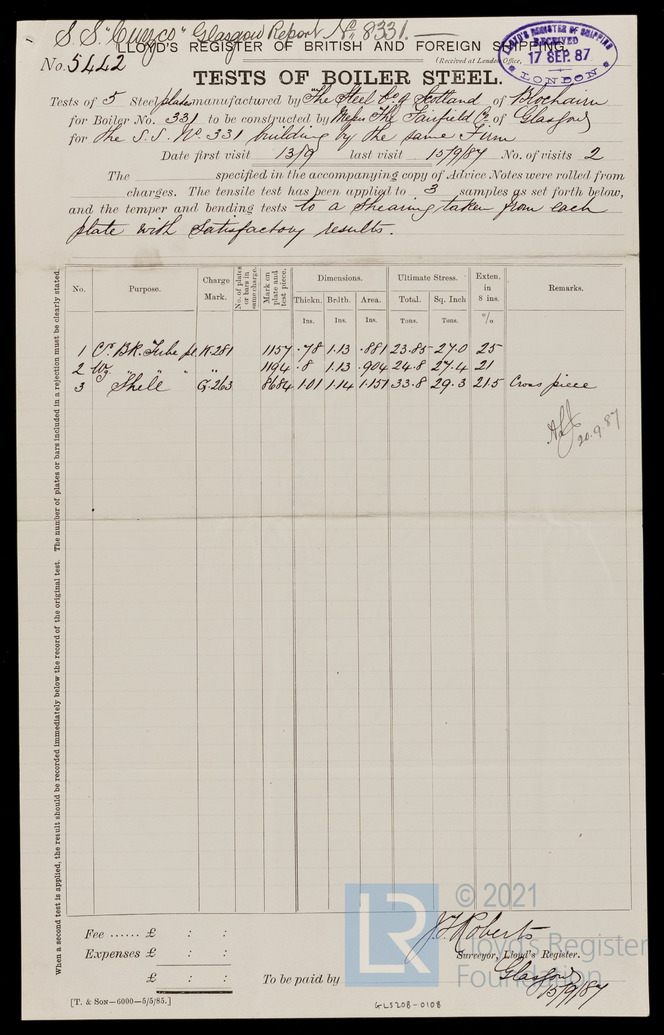 S.S. "Cuzco" Glasgow Report No. 8331.
LLOYD'S REGISTER OF BRITISH AND FOREIGN SHIPPING.
No. 5442
(Received at London Office,
LLOYD'S REGISTER OF SHIPPING
RECEIVED
17 SEP. 87
LONDON
TESTS OF BOILER STEEL.
Tests of 5 Steel plates manufactured by "The Steel Co. of Scotland of Blochairn
for Boiler No. 331 to be constructed by Messrs The Fairfield Co. of Glasgow
for the S.S. No. 331 building by the same Firm
Date first visit 13/9 last visit 15/9/87 No. of visits 2
The specified in the accompanying copy of Advice Notes were rolled from
charges. The tensile test has been applied to 3 samples as set forth below,
and the temper and bending tests to a shearing taken from each
plate with satisfactory results.
No. Purpose. Charge Mark. No. of plates or bars in same charge. Mark on plate and test piece. Dimensions. Ultimate Stress. Exten. in 8 ins. Remarks.
Thickn. Brdth. Area. Total. Sq. Inch
Ins. Ins. Ins. Tons. Tons. %
1 Cr. BK. Tube pl. K.281 1157 .78 1.13 .881 23.85 27.0 25
2 Wg " " " 1194 .8 1.13 .904 24.8 27.4 21
3 "Shell" G.263 8684 1.01 1.14 1.151 33.8 29.3 21.5 Cross piece
20.9.87
When a second test is applied, the result should be recorded immediately below the record of the original test. The number of plates or bars included in a rejection must be clearly stated.
Fee ...... £ : :
Expenses £ : :
£ : :
To be paid by
J F Roberts
Surveyor, Lloyd's Register.
Glasgow
15/9/87
[T. & Son—6000—5/5/85.]
GLS208-0108
LR
© 2021
Lloyd's Register
Foundation